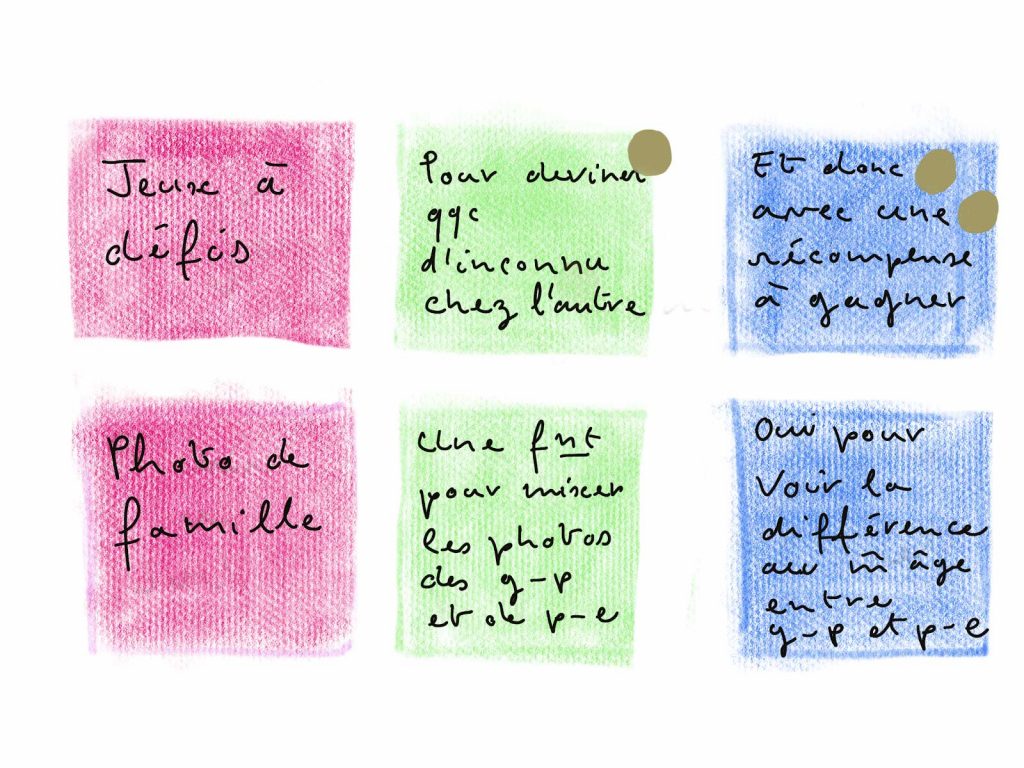 Jeux à
défis
Pour deviner
qqc
d'inconnu
chez l'autre
Et donc
avec une
récompense
à gagner
Photo de
famille
Une fnt
pour mixer
les photos
des g-p
et de p-e
Oui pour
voir la
différence
au m̃ âge
entre
g-p et p-e